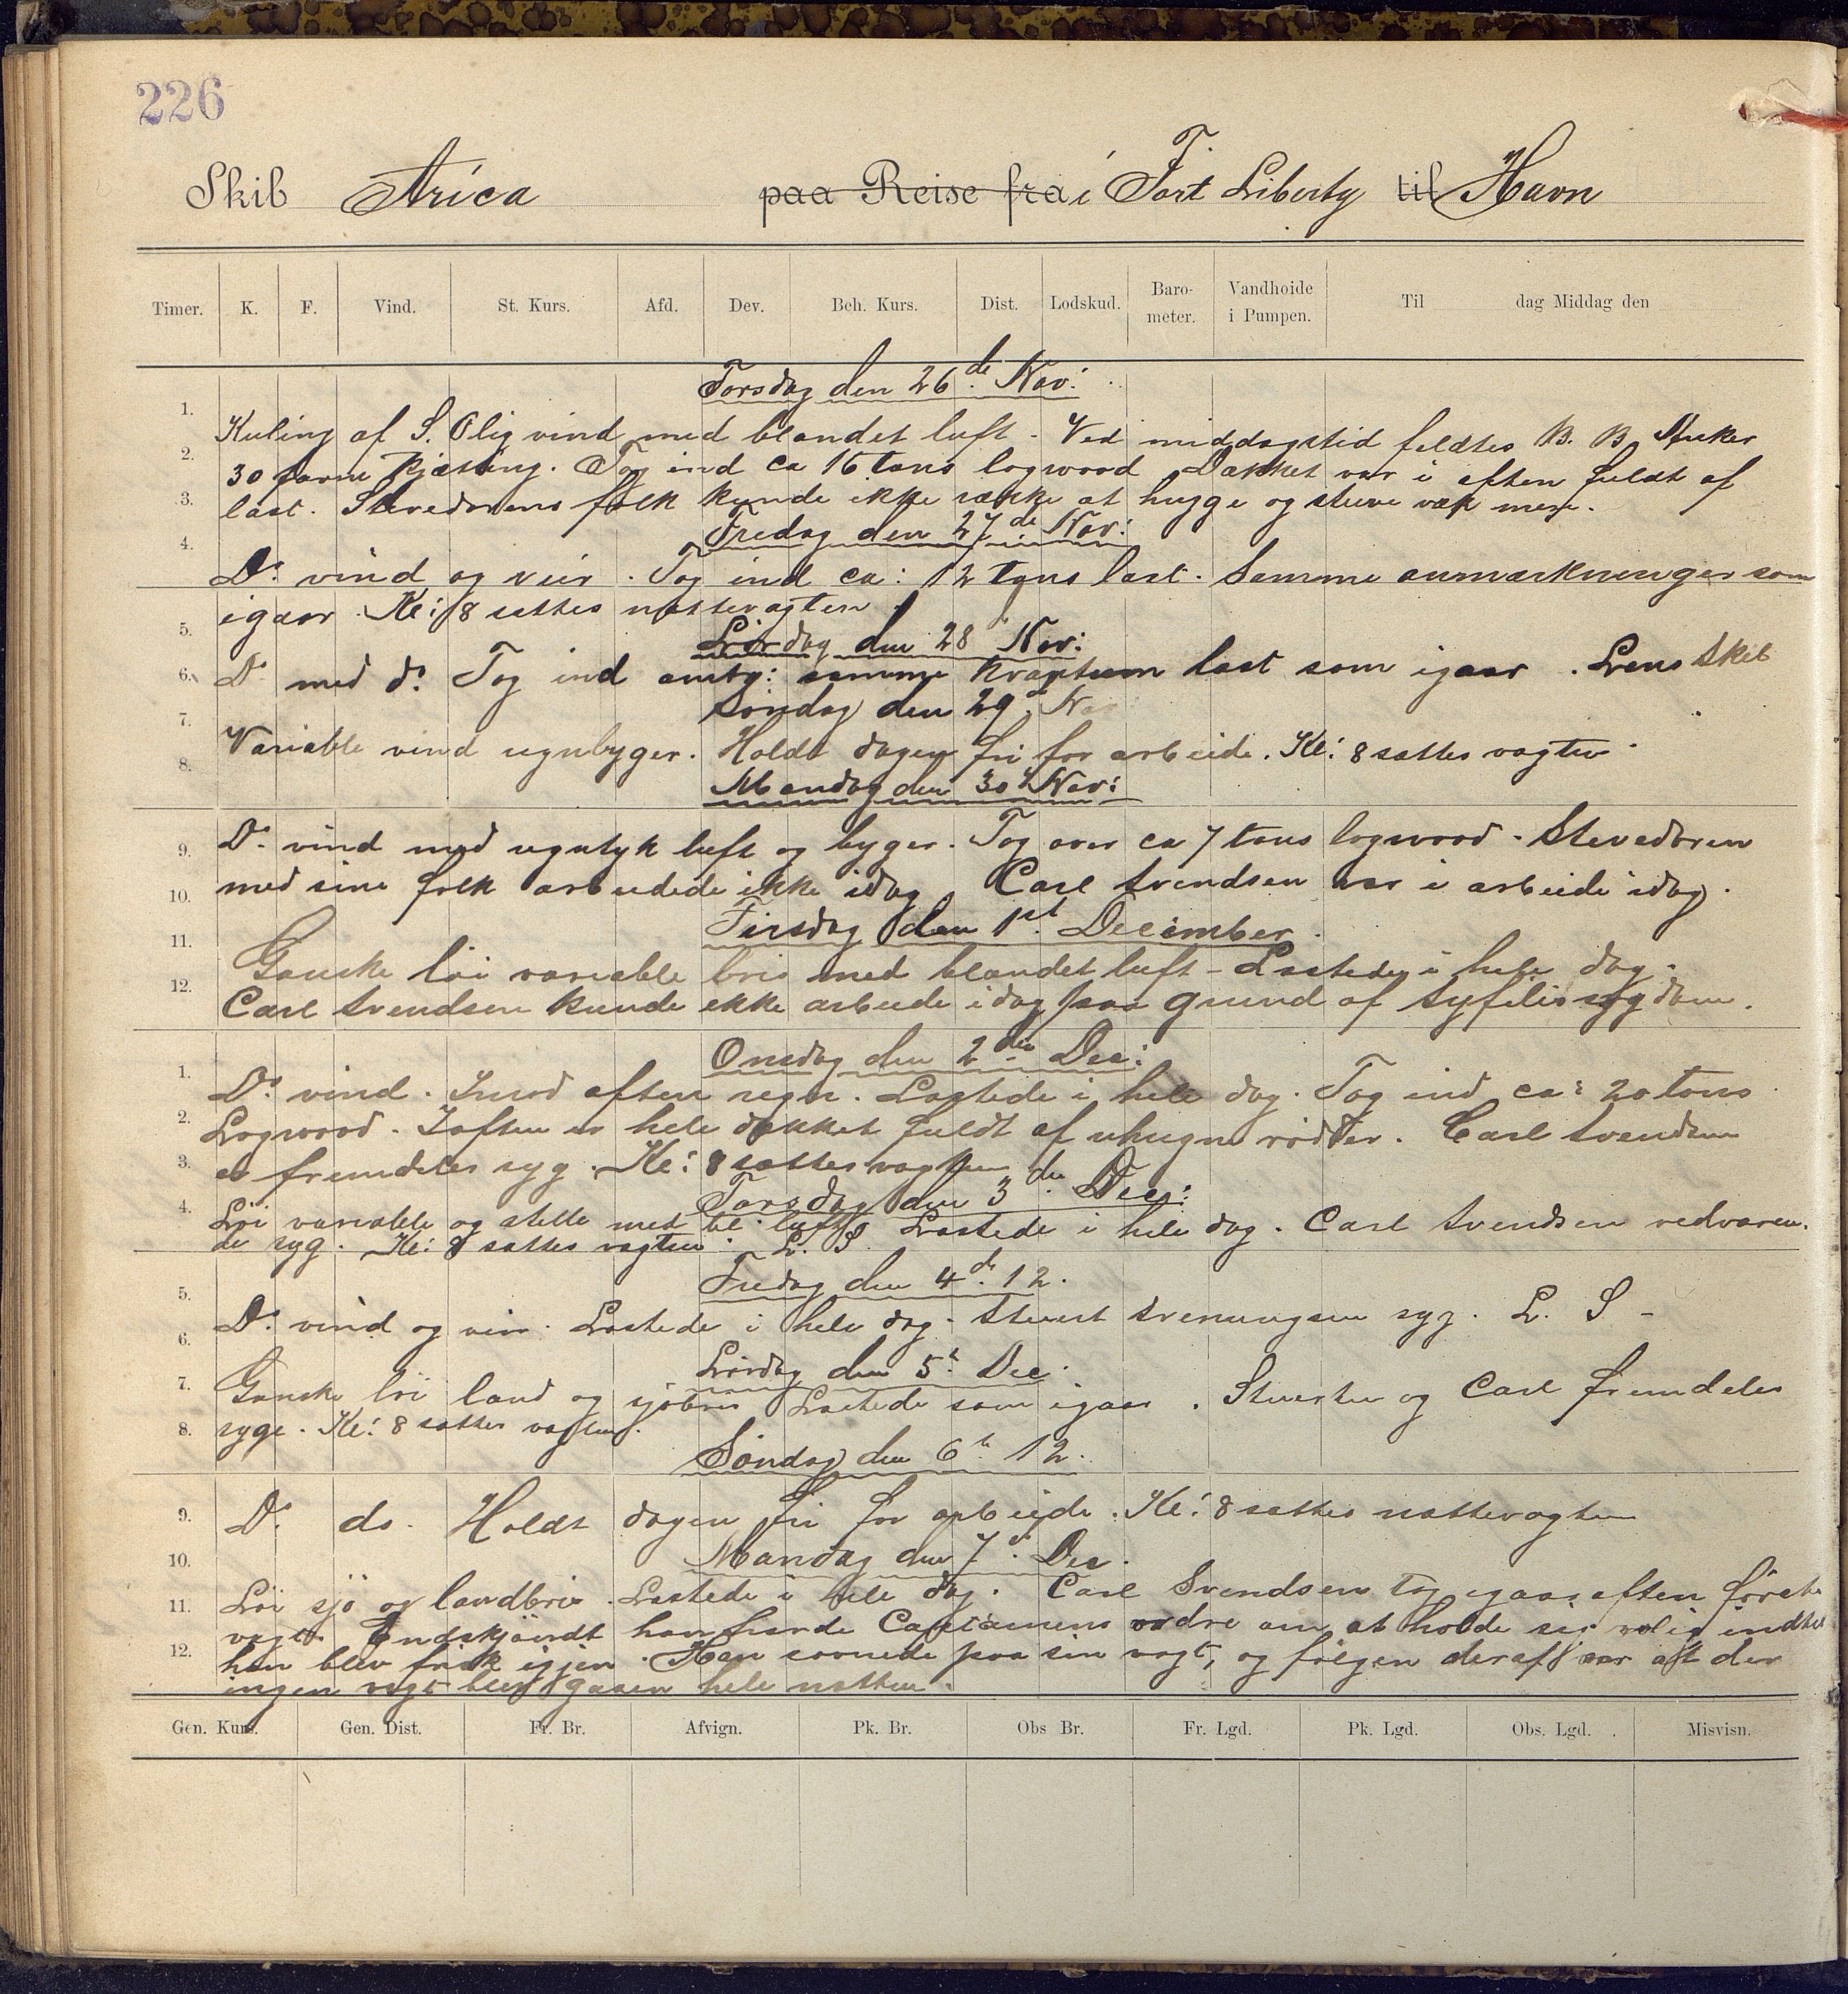 226
Skib Arica paa Reise fra i Fort Liberty til Havn
Timer. K. F. Vind. St. Kurs. Afd. Dev. Beh. Kurs. Dist. Lodskud. Baro-meter. Vandhoide i Pumpen. Til dag Middag den
Torsdag den 26de Nov:
1.
Kuling af S. Olig vind med blandet luft. Ved middagstid feldtes B. B. Anker
2.
30 favne kjæting. Tog ind ca 16 tons logwood. Dækket var i aften fuldt af
3.
last. Stevedorens folk kunde ikke række at hugge og stuve væk mere.
Fredag den 27de Nov:
4.
Do. vind og veir. Tog ind ca: 12 tons last. Samme anmærkninger som
igaar. Kl: 8 sattes nattevagten.
5.
Lørdag den 28 Nov:
6.
Do med do. Tog ind omtr: samme kvantum last som igaar. Lens Skib
Søndag den 29 Nov
7.
Variable vind regnbyger. Holdt dagen fri for arbeide. Kl: 8 sattes vagten.
8.
Mandag den 30 Nov:
9.
Do. vind med regntyk luft og byger. Tog over ca 7 tons logwood. Stevedoren
10.
med sine folk arbeidede ikke idag. Carl Svendsen var i arbeide idag.
Tirsdag den 1st. December.
11.
Ganske löi variable bris med blandet luft - Lastede i hele dag.
12.
Carl Svendsen kunde ikke arbeide idag paa grund af syfilis sygdom.
Onsdag den 2den Dec:
1.
Do. vind. Imod aften regn. Lastede i hele dag. Tog ind ca: 20 tons
2.
Logwood. Iaften er hele dækket fuldt af uhugne rødter. Carl Svendsen
3.
er fremdeles syg. Kl: 8 sattes vagten
Torsdag den 3de Dec:
4.
Löi variable og stille med bl. luft. Lastede i hele dag. Carl Svendsen vedvaren-
de syg. Kl: 8 sattes vagten. L. S.
Fredag den 4de 12.
5.
Do. vind og veir. Lastede i hele dag. Stuert Svenungsen syg. L. S -
6.
Lørdag den 5te Dec.
7.
Ganske löi land og sjöbris Lastede som igaar. Stuerten og Carl fremdeles
8.
syge. Kl: 8 sattes vagten.
Söndag den 6te 12.
9.
Do. do. Holdt dagen fri for arbeide. Kl: 8 sattes nattevagten
10.
Mandag den 7de Dec.
11.
Löi sjö og landbris. Lastede i hele dag. Carl Svendsen tog igaar aften förste
vagt. Endskjöndt han havde Captainens ordre om at holde sig rolig indtil
12.
han blev frisk igjen. Han sovnede paa sin vagt, og fölgen deraf var at der
ingen vagt blev gaaen hele natten.
Gen. Kurs. Gen. Dist. Fr. Br. Afvign. Pk. Br. Obs Br. Fr. Lgd. Pk. Lgd. Obs. Lgd. Misvisn.